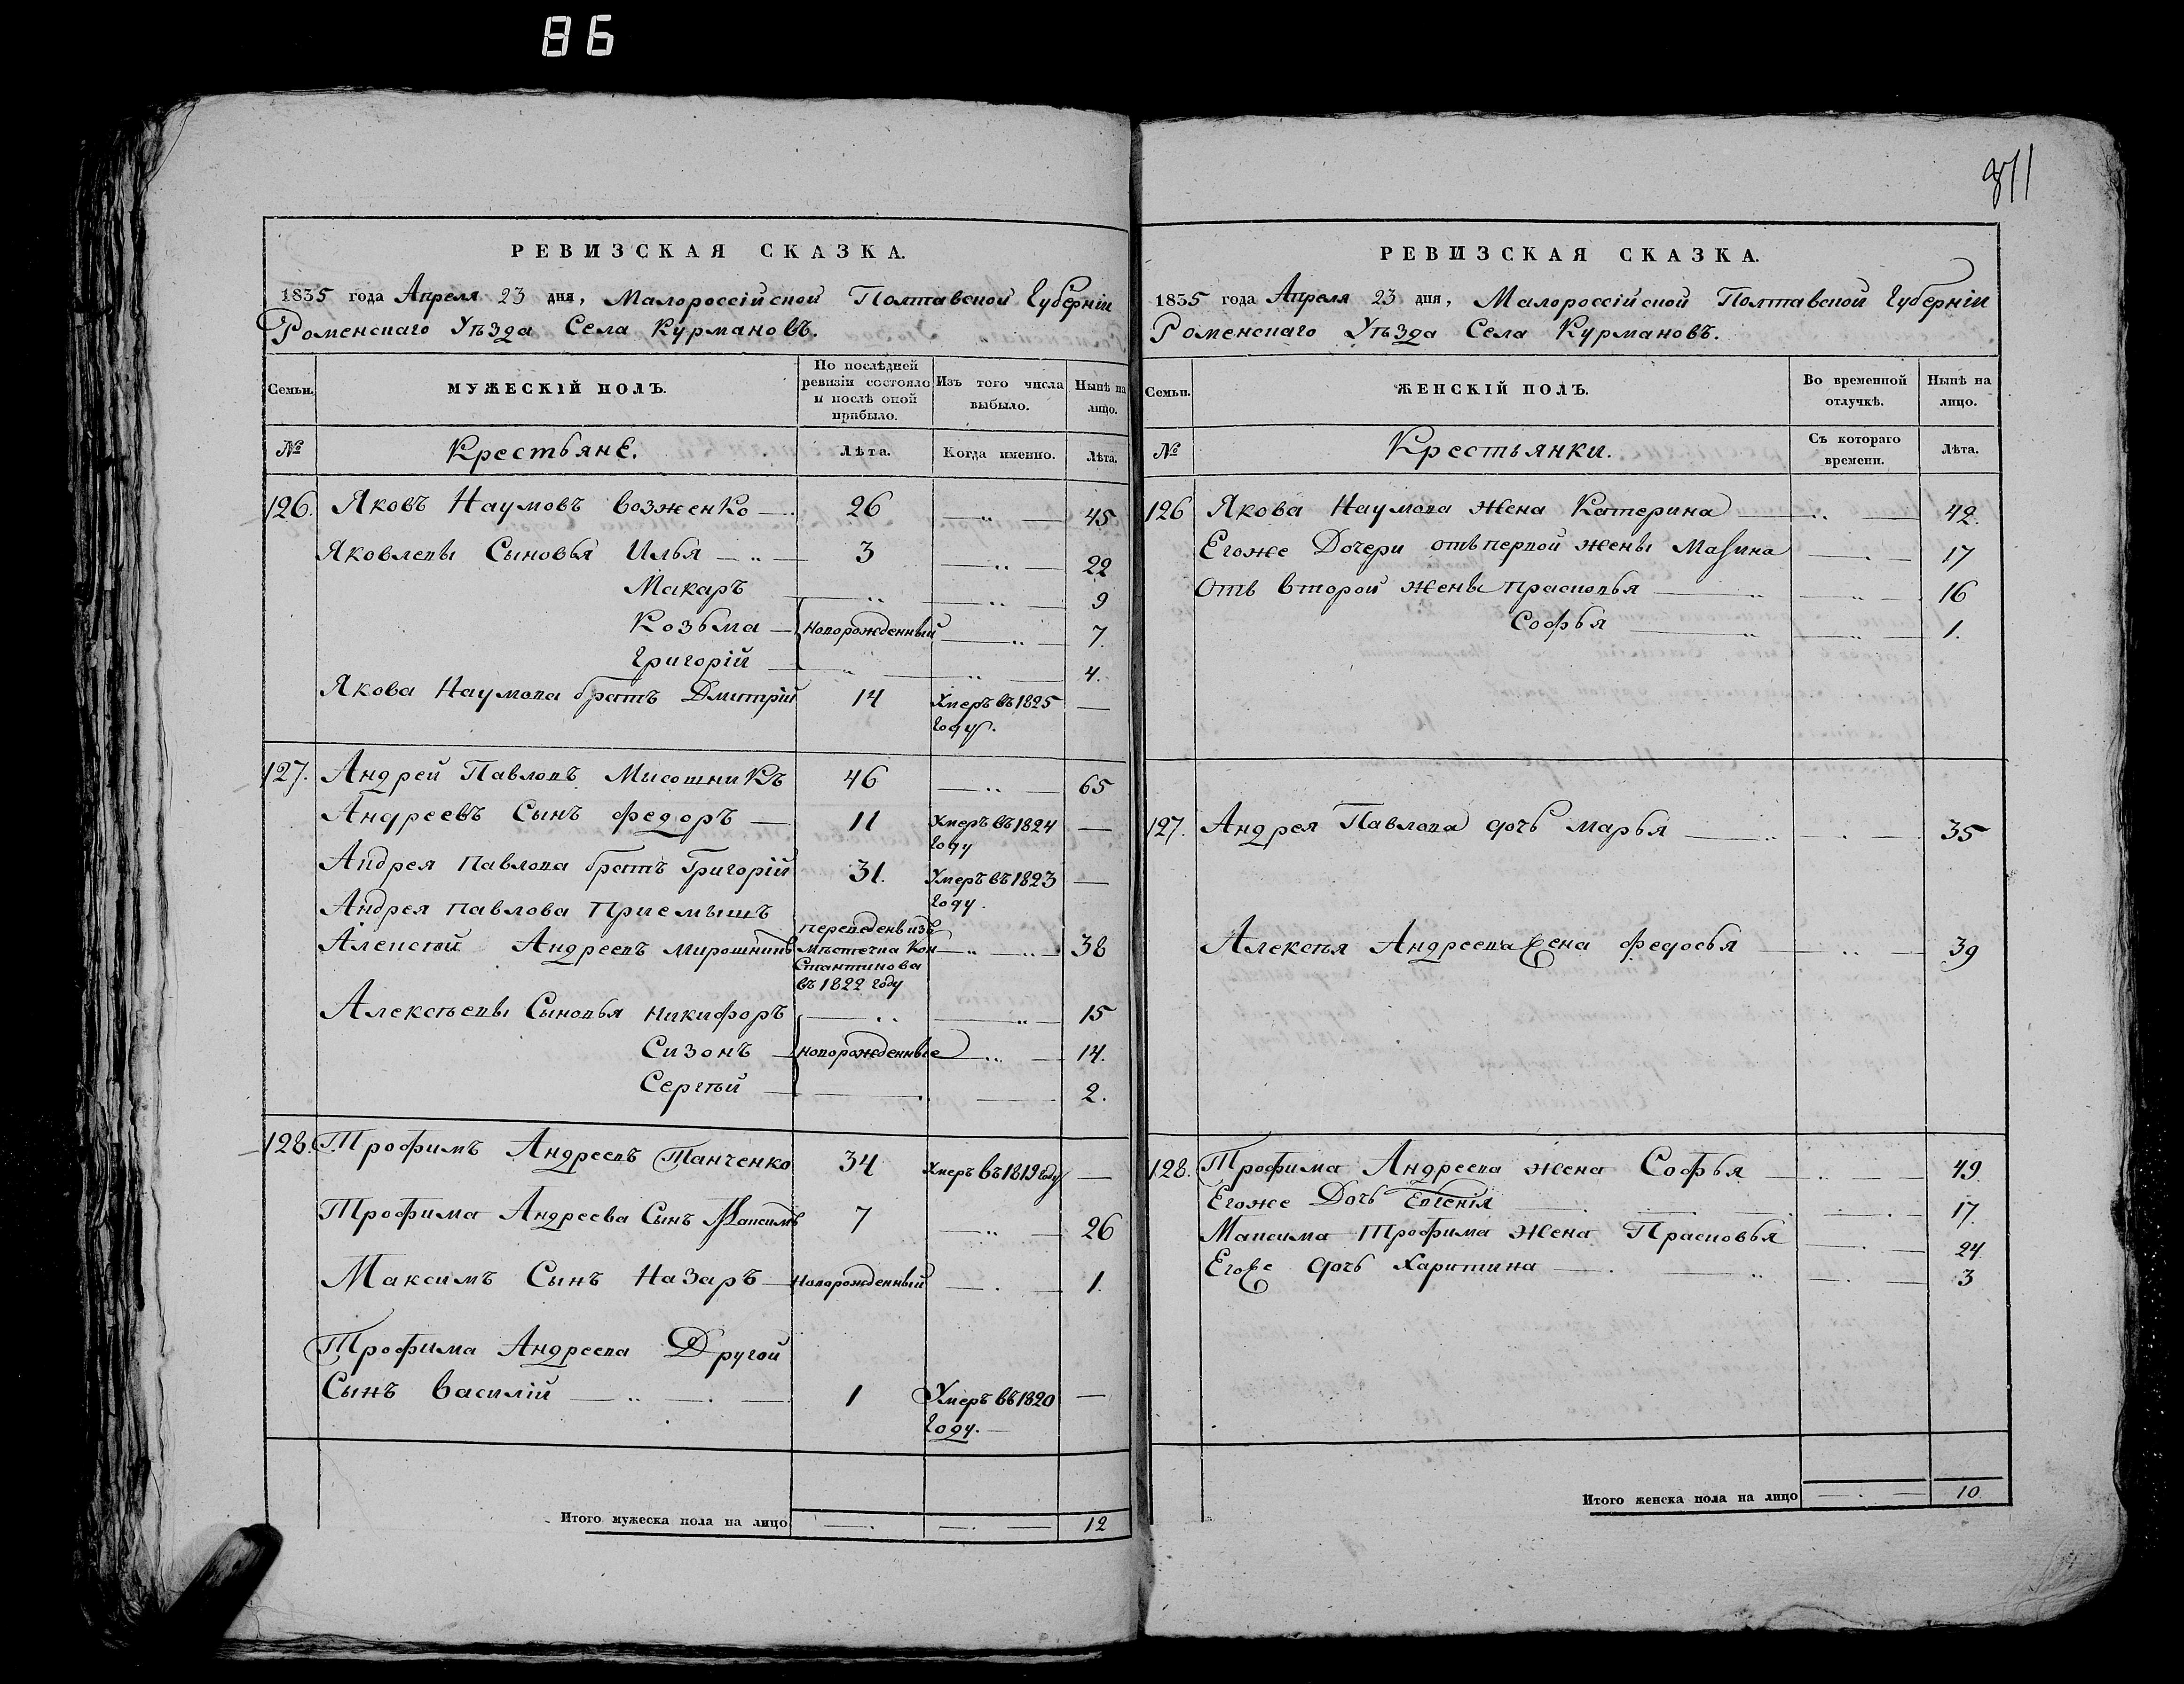 86
371
РЕВИЗСКАЯ СКАЗКА.
1835 года Апреля 23 дня, Малороссійской Полтавской Губерніи
Роменскаго Уѣзда Села Курмановъ.
Семьи.
МУЖЕСКІЙ ПОЛЪ.
По послѣдней ревизіи состояло и послѣ оной прибыло.
Изъ того числа выбыло.
Нынѣ на лицо.
№
Крестьяне.
Лѣта.
Когда именно.
Лѣта.
126. Яковъ Наумовъ Возженко 26 45
Яковлевы Сыновья Илья 3 22
Макаръ 9
Козьма Новорожденный 7.
Григорій 4.
Якова Наумова братъ Дмитрій 14 Умеръ въ 1825
году.
127. Андрей Павловъ 46 65
Андреевъ Сынъ Федоръ 11 Умеръ въ 1824
году
Андрея Павлова братъ Григорій 31. Умеръ въ 1823
году.
Андрея Павлова Приемышъ
переведенъ изъ
Алексѣй Андреевъ Мирошникъ Мѣстечка Кон 38
стантинова
въ 1822 году
Алексѣевы Сыновья Никифоръ 15
Сизонъ новорожденные 14.
Сергѣй 2.
128. Трофимъ Андреевъ Танченко 34 Умеръ въ 1819 году
Трофима Андреева Сынъ Максимъ 7 26
Максимъ Сынъ Назаръ Новорожденный 1.
Трофима Андреева Другой
Сынъ Василій 1 Умеръ въ 1820
году.
Итого мужеска пола на лицо 12
РЕВИЗСКАЯ СКАЗКА.
1835 года Апреля 23 дня, Малороссійской Полтавской Губерніи
Роменскаго Уѣзда Села Курмановъ.
Семьи.
ЖЕНСКІЙ ПОЛЪ.
Во временной отлучкѣ.
Нынѣ на лицо.
№
Крестьянки.
Съ котораго времени.
Лѣта.
126 Якова Наумова жена Катерина 42.
Егоже Дочери отъ первой жены 17
отъ второй жены Прасковья 16
Софья 1.
127. Андрея Павлова дочь Марья 35
Алексѣя Андреева жена Федосья 39
128. Трофима Андреева жена Софья 49.
Егоже Дочь Евгенія 17.
Максима Трофима жена Прасковья 24
Егоже дочь Харитина 3
Итого женска пола на лицо 10.